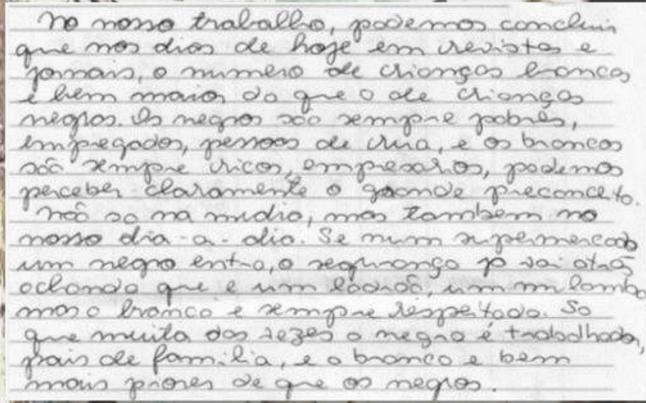 No nosso trabalho, podemos concluir
que nos dias de hoje em revistas e
jornais, o numero de crianças brancas
é bem maior do que o de crianças
negras. Os negros são sempre pobres,
empregados, pessoas de rua, e os brancos
são sempre ricos, empresarios, podemos
perceber claramente o grande preconceito.
Não so na midia, mas tambem no
nosso dia-a-dia. Se num supermercado
um negro entra, o segurança ja vai atrás
achando que e um ladrão, um
mas o branco e sempre respeitado. So
que muita das vezes o negro é trabalhador,
pais de familia, e o branco e bem
mais piores de que os negros.